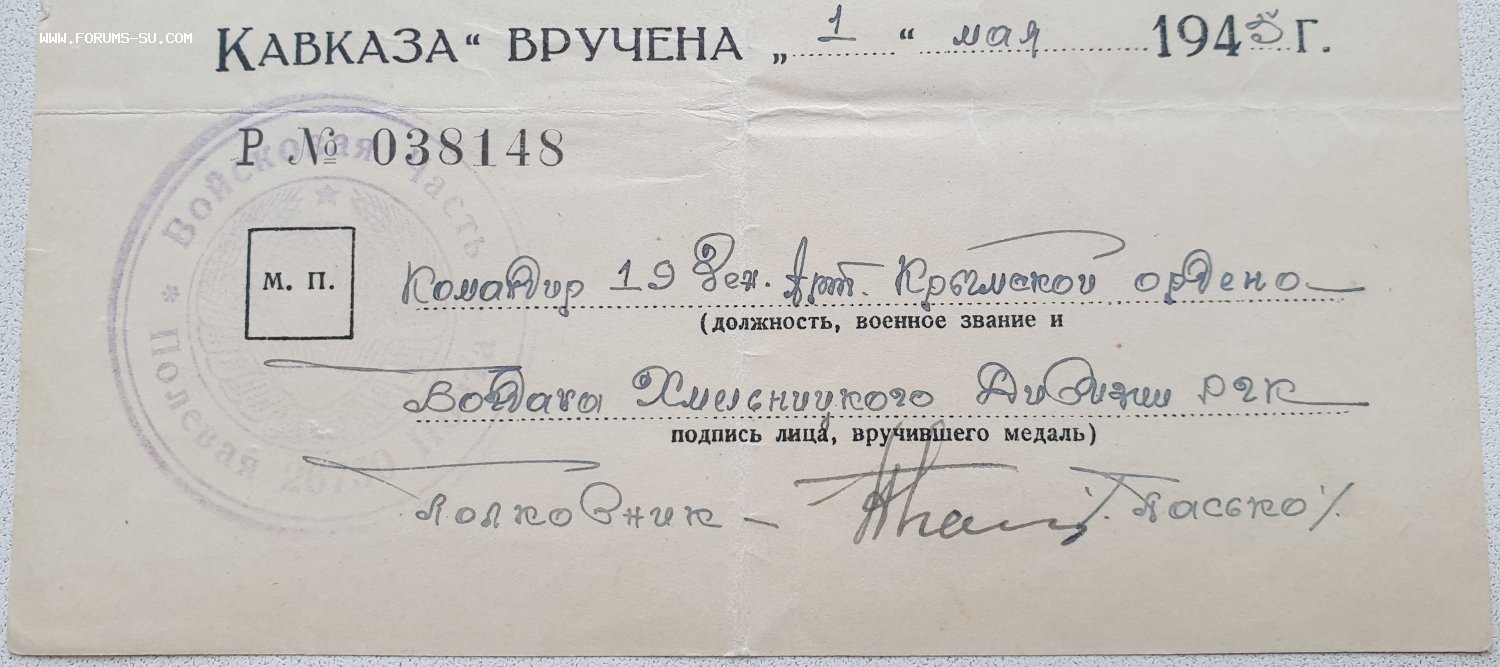 WWW.FORUMS-SU.COM
КАВКАЗА“ ВРУЧЕНА „1“ мая 1945 г.
Р № 038148
Войсковая Часть
* Полевая
М. П.
Командир 19 Зен. Арт. Крымской ордено–
(должность, военное звание и
Богдана Хмельницкого Дивизии РГК
подпись лица, вручившего медаль)
Полковник – /. Пасько /.